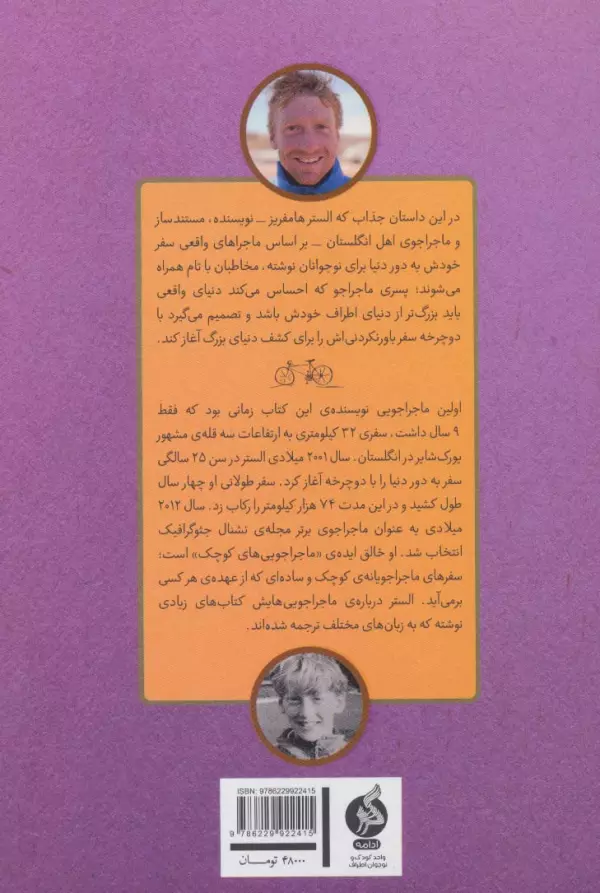 در این داستان جذاب که الستر هامفریز ــ نویسنده، مستندساز
و ماجراجوی اهل انگلستان ــ بر اساس ماجراهای واقعی سفر
خودش به دور دنیا برای نوجوانان نوشته، مخاطبان با تام همراه
می‌شوند؛ پسری ماجراجو که احساس می‌کند دنیای واقعی
باید بزرگ‌تر از دنیای اطراف خودش باشد و تصمیم می‌گیرد با
دوچرخه سفر باورنکردنی‌اش را برای کشف دنیای بزرگ آغاز کند.
اولین ماجراجویی نویسنده‌ی این کتاب زمانی بود که فقط
۹ سال داشت، سفری ۳۲ کیلومتری به ارتفاعات سه قله‌ی مشهور
یورک‌شایر در انگلستان. سال ۲۰۰۱ میلادی الستر در سن ۲۵ سالگی
سفر به دور دنیا را با دوچرخه آغاز کرد. سفر طولانی او چهار سال
طول کشید و در این مدت ۷۴ هزار کیلومتر را رکاب زد. سال ۲۰۱۲
میلادی به عنوان ماجراجوی برتر مجله‌ی نشنال جئوگرافیک
انتخاب شد. او خالق ایده‌ی «ماجراجویی‌های کوچک» است؛
سفرهای ماجراجویانه‌ی کوچک و ساده‌ای که از عهده‌ی هر کسی
برمی‌آید. الستر درباره‌ی ماجراجویی‌هایش کتاب‌های زیادی
نوشته که به زبان‌های مختلف ترجمه شده‌اند.
ISBN: 9786229922415
9 786229 922415
۴۸۰۰۰ تومـــان
ادامه
واحد کودک و
نوجوان اطراف